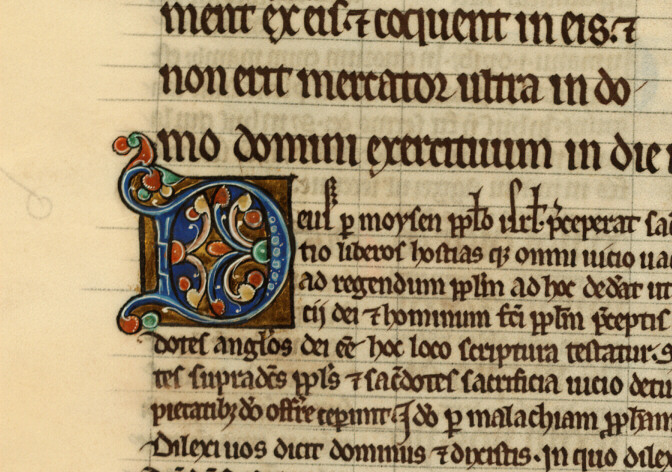 ment ex eis. ⁊ coquent in eis. ⁊
non erit mercator ultra in do
mo domini exercituum in die
Deus p̱ moysen ppl̄o isrl̄. p̄ceperat sac
tio liberos hostias q̱ omni uicio ua
ad regendum ppl̄m ad hoc dedat̄ ut
cij dei ⁊ hominum fc̄i ppl̄m p̄ceptis
dotes anglos dei ēē hoc loco scriptura testatur. S
tes supradc̄s ppl̄s ⁊ sac̄dotes sacrificia uicio detu
pietatibꝫ do offr̄e ceperunt. do p̱ malachiam ppham
Dilexi uos dicit dominus ⁊ dixistis. in quo dilex